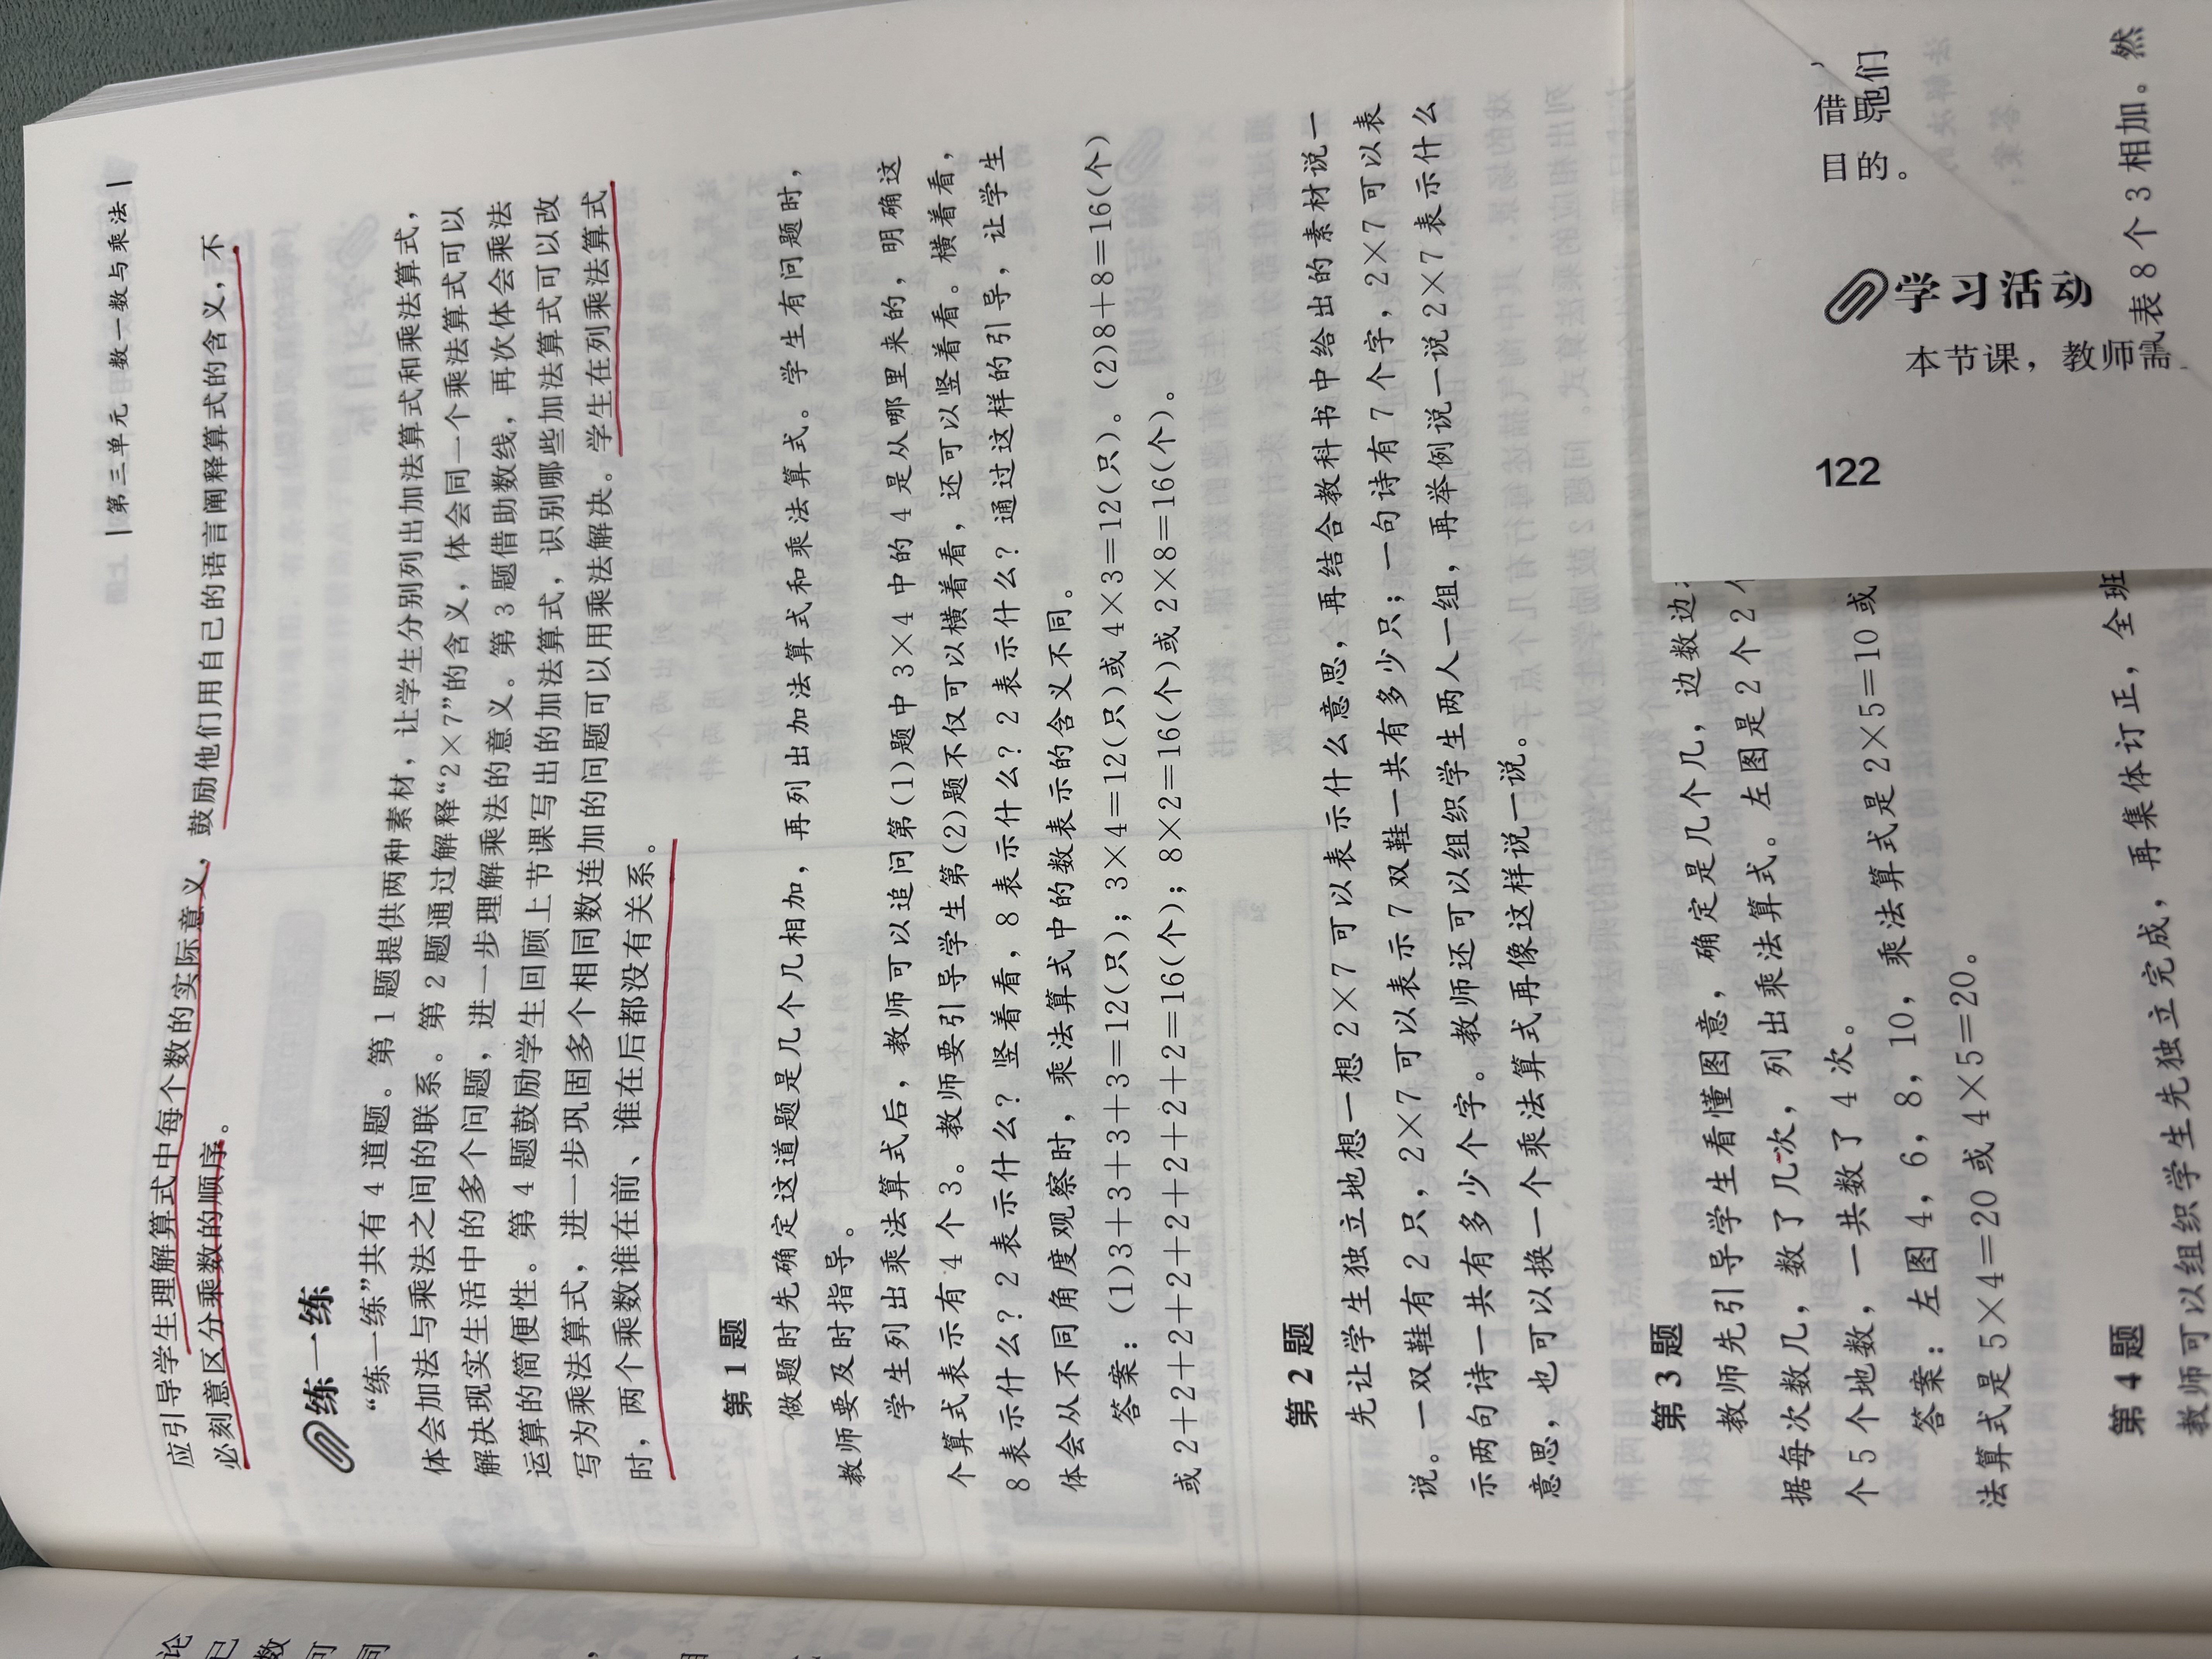 |第三单元 数一数与乘法|
应引导学生理解算式中每个数的实际意义，鼓励他们用自己的语言阐释算式的含义，不
必刻意区分乘数的顺序。
练一练
“练一练”共有 4 道题。第 1 题提供两种素材，让学生分别列出加法算式和乘法算式，
体会加法与乘法之间的联系。第 2 题通过解释“2×7”的含义，体会同一个乘法算式可以
解决现实生活中的多个问题，进一步理解乘法的意义。第 3 题借助数线，再次体会乘法
运算的简便性。第 4 题鼓励学生回顾上节课写出的加法算式，识别哪些加法算式可以改
写为乘法算式，进一步巩固多个相同数连加的问题可以用乘法解决。学生在列乘法算式
时，两个乘数谁在前、谁在后都没有关系。
第 1 题
做题时先确定这道题是几个几相加，再列出加法算式和乘法算式。学生有问题时，
教师要及时指导。
学生列出乘法算式后，教师可以追问第(1)题中 3×4 中的 4 是从哪里来的，明确这
个算式表示有 4 个 3。教师要引导学生第(2)题不仅可以横着看，还可以竖着看。横着看，
8 表示什么？2 表示什么？竖着看，8 表示什么？2 表示什么？通过这样的引导，让学生
体会从不同角度观察时，乘法算式中的数表示的含义不同。
答案：(1)3+3+3+3=12(只)；3×4=12(只)或 4×3=12(只)。(2)8+8=16(个)
或 2+2+2+2+2+2+2+2=16(个)；8×2=16(个)或 2×8=16(个)。
第 2 题
先让学生独立地想一想 2×7 可以表示什么意思，再结合教科书中给出的素材说一
说。一双鞋有 2 只，2×7 可以表示 7 双鞋一共有多少只；一句诗有 7 个字，2×7 可以表
示两句诗一共有多少个字。教师还可以组织学生两人一组，再举例说一说 2×7 表示什么
意思，也可以换一个乘法算式再像这样说一说。
第 3 题
教师先引导学生看懂图意，确定是几个几，边数边
据每次数几，数了几次，列出乘法算式。左图是 2 个 2
个 5 个地数，一共数了 4 次。
答案：左图 4，6，8，10，乘法算式是 2×5=10 或
法算式是 5×4=20 或 4×5=20。
第 4 题
教师可以组织学生先独立完成，再集体订正，全班
122
学习活动
本节课，教师
表 8 个 3 相加。然
们
论
己
数
可
同